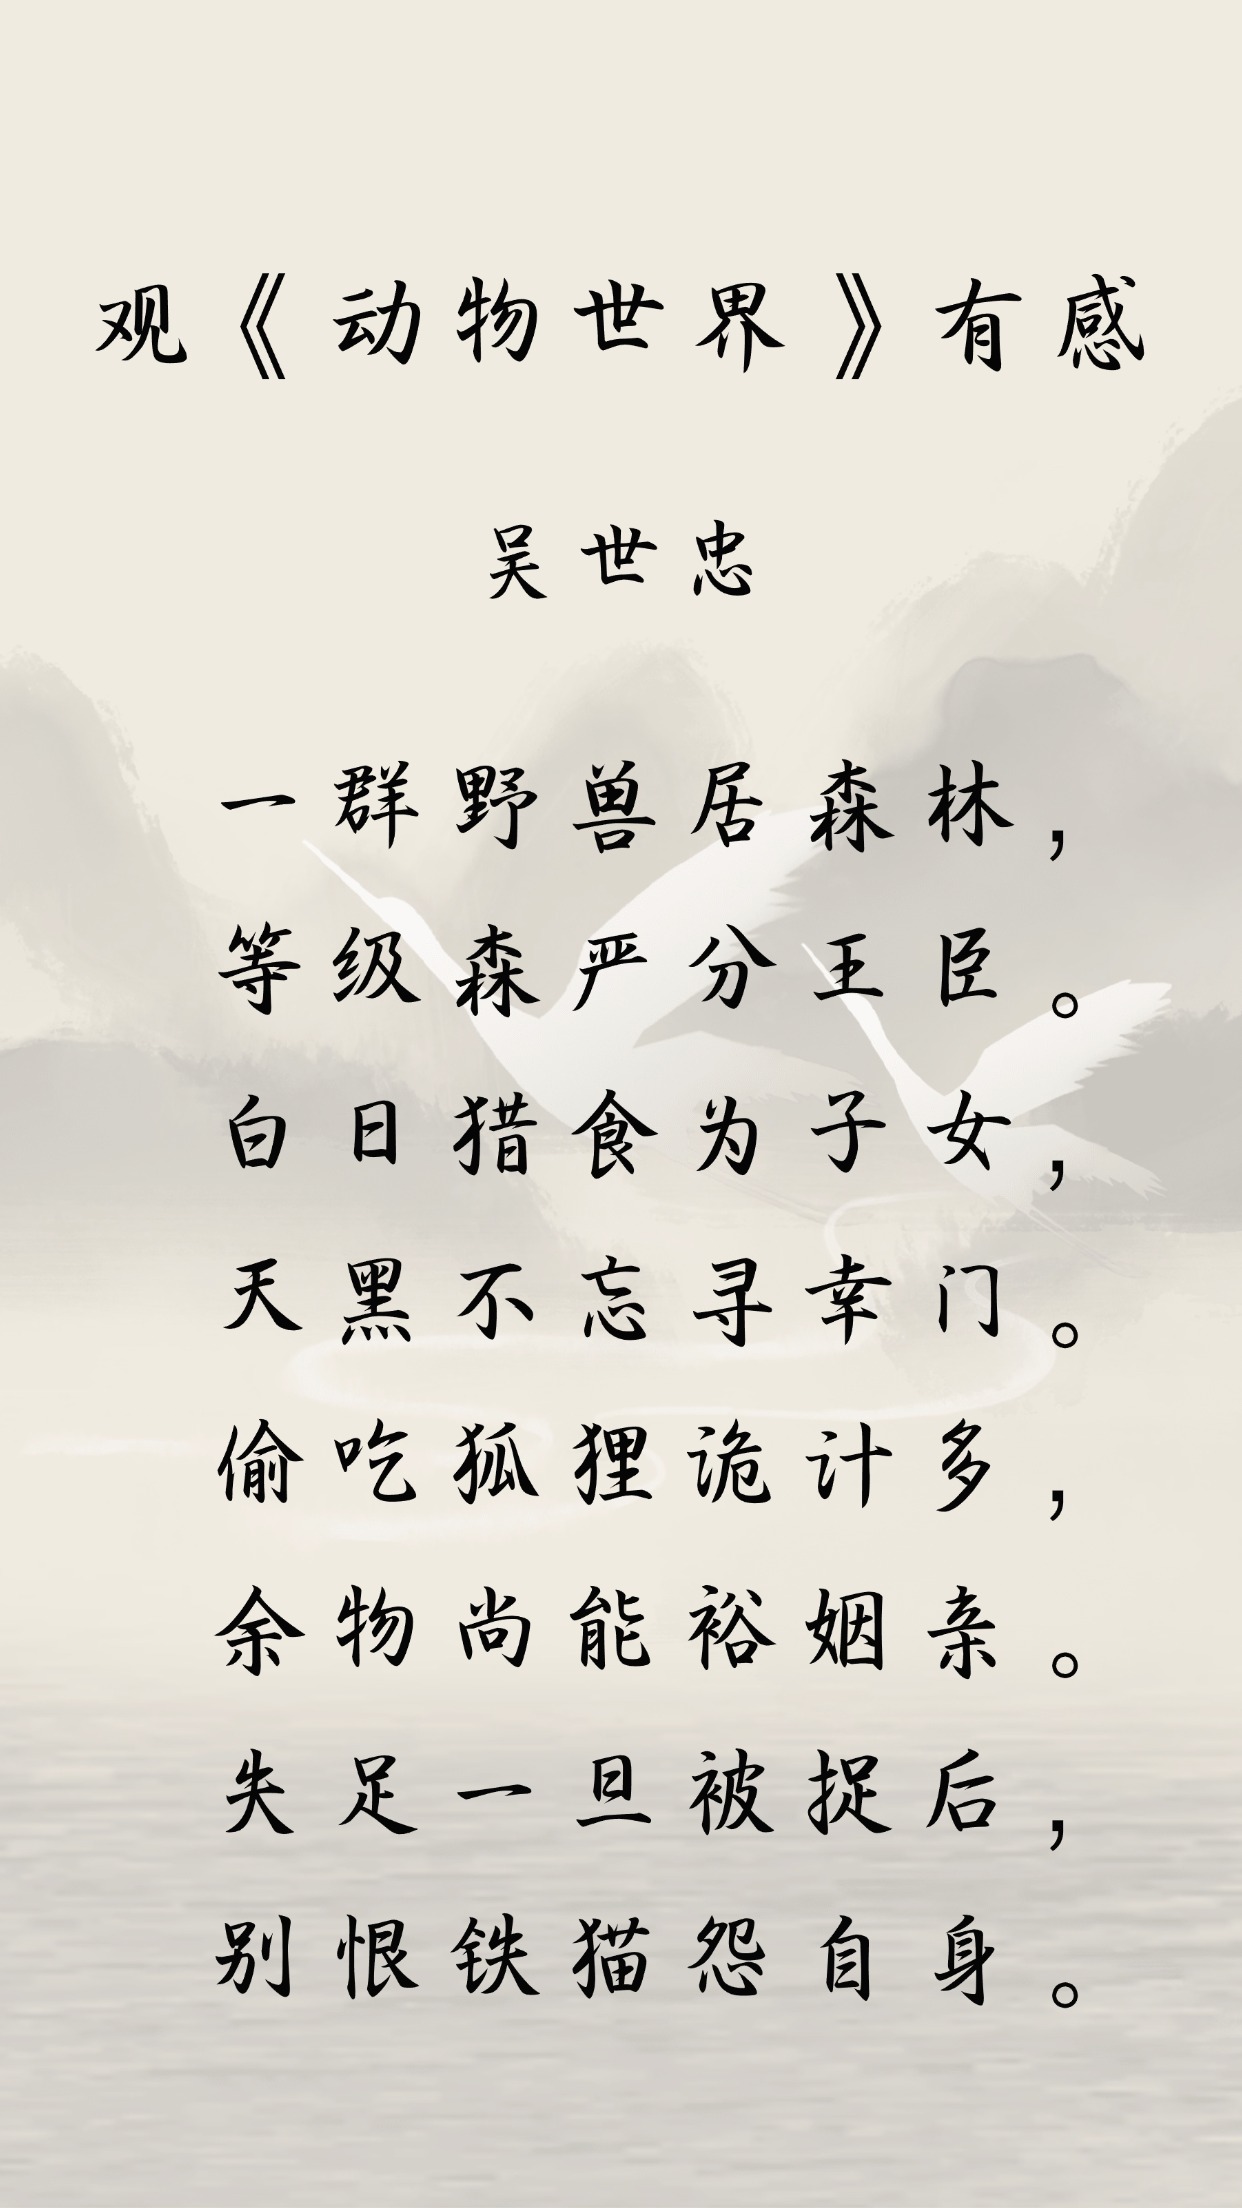 观《动物世界》有感
吴世忠
一群野兽居森林，
等级森严分王臣。
白日猎食为子女，
天黑不忘寻幸门。
偷吃狐狸诡计多，
余物尚能裕姻亲。
失足一旦被捉后，
别恨铁猫怨自身。